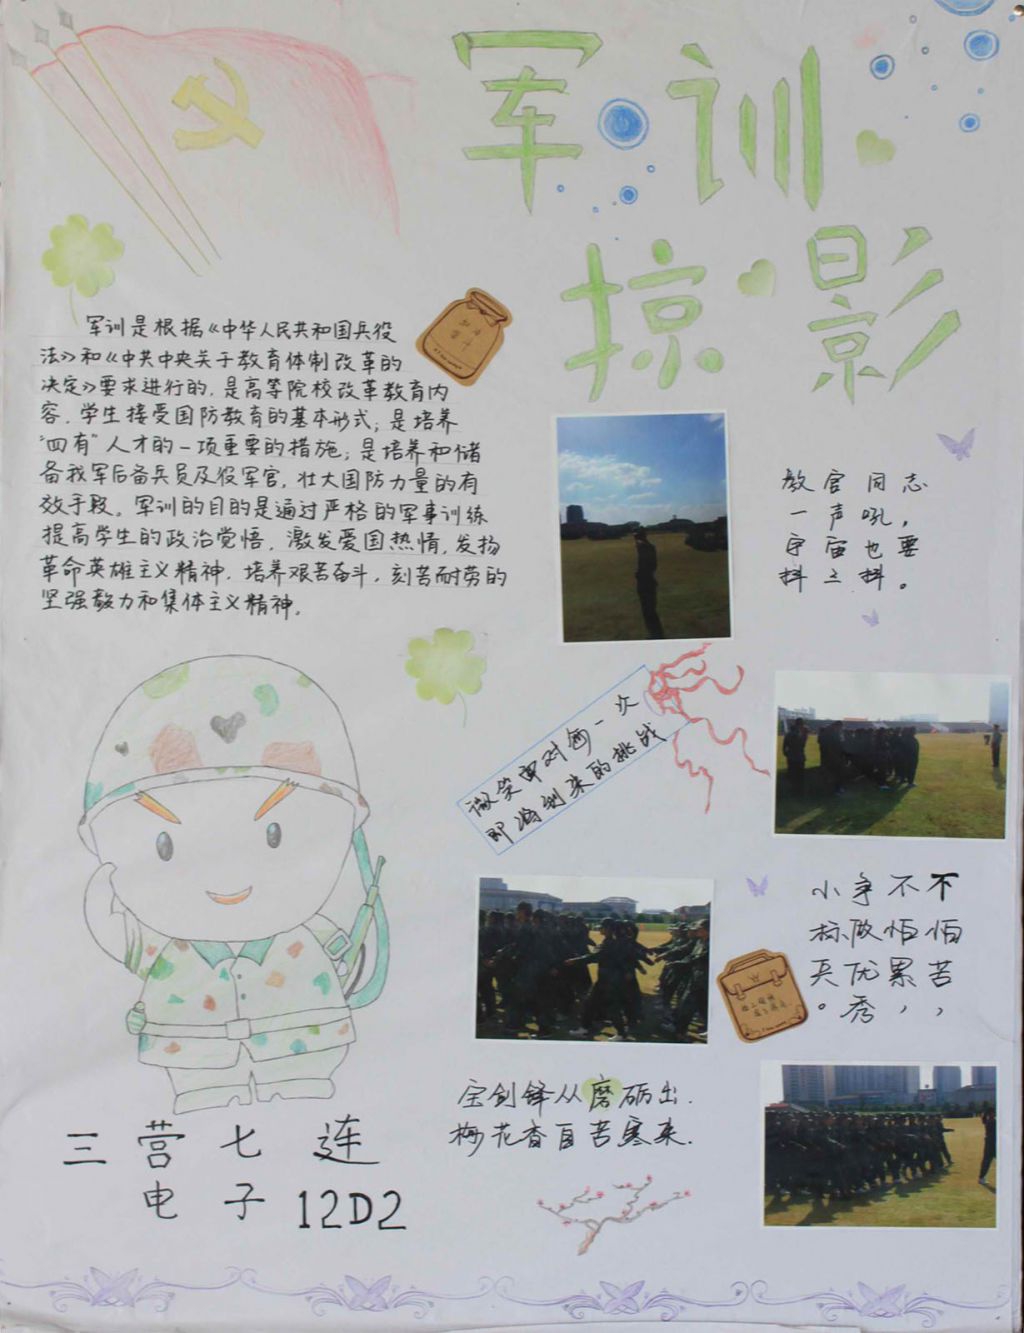 军训
掠影
军训是根据《中华人民共和国兵役
法》和《中共中央关于教育体制改革的
决定》要求进行的，是高等院校改革教育内
容，学生接受国防教育的基本形式；是培养
“四有”人才的一项重要的措施；是培养和储
备我军后备兵员及役军官，壮大国防力量的有
效手段。军训的目的是通过严格的军事训练
提高学生的政治觉悟，激发爱国热情，发扬
革命英雄主义精神，培养艰苦奋斗，刻苦耐劳的
坚强毅力和集体主义精神。
教官同志
一声吼，
宇宙也要
抖三抖。
微笑面对每一次
即将到来的挑战
不怕苦，
不怕累，
争做优秀
小标兵。
宝剑锋从磨砺出.
梅花香自苦寒来.
三营七连
电子12D2